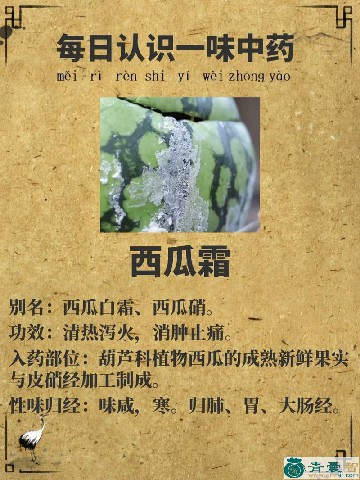 每日认识一味中药
měi rì rèn shi yí wèi zhōng yào
西瓜霜
别名：西瓜白霜、西瓜硝。
功效：清热泻火，消肿止痛。
入药部位：葫芦科植物西瓜的成熟新鲜果实
与皮硝经加工制成。
性味归经：味咸，寒。归肺、胃、大肠经。